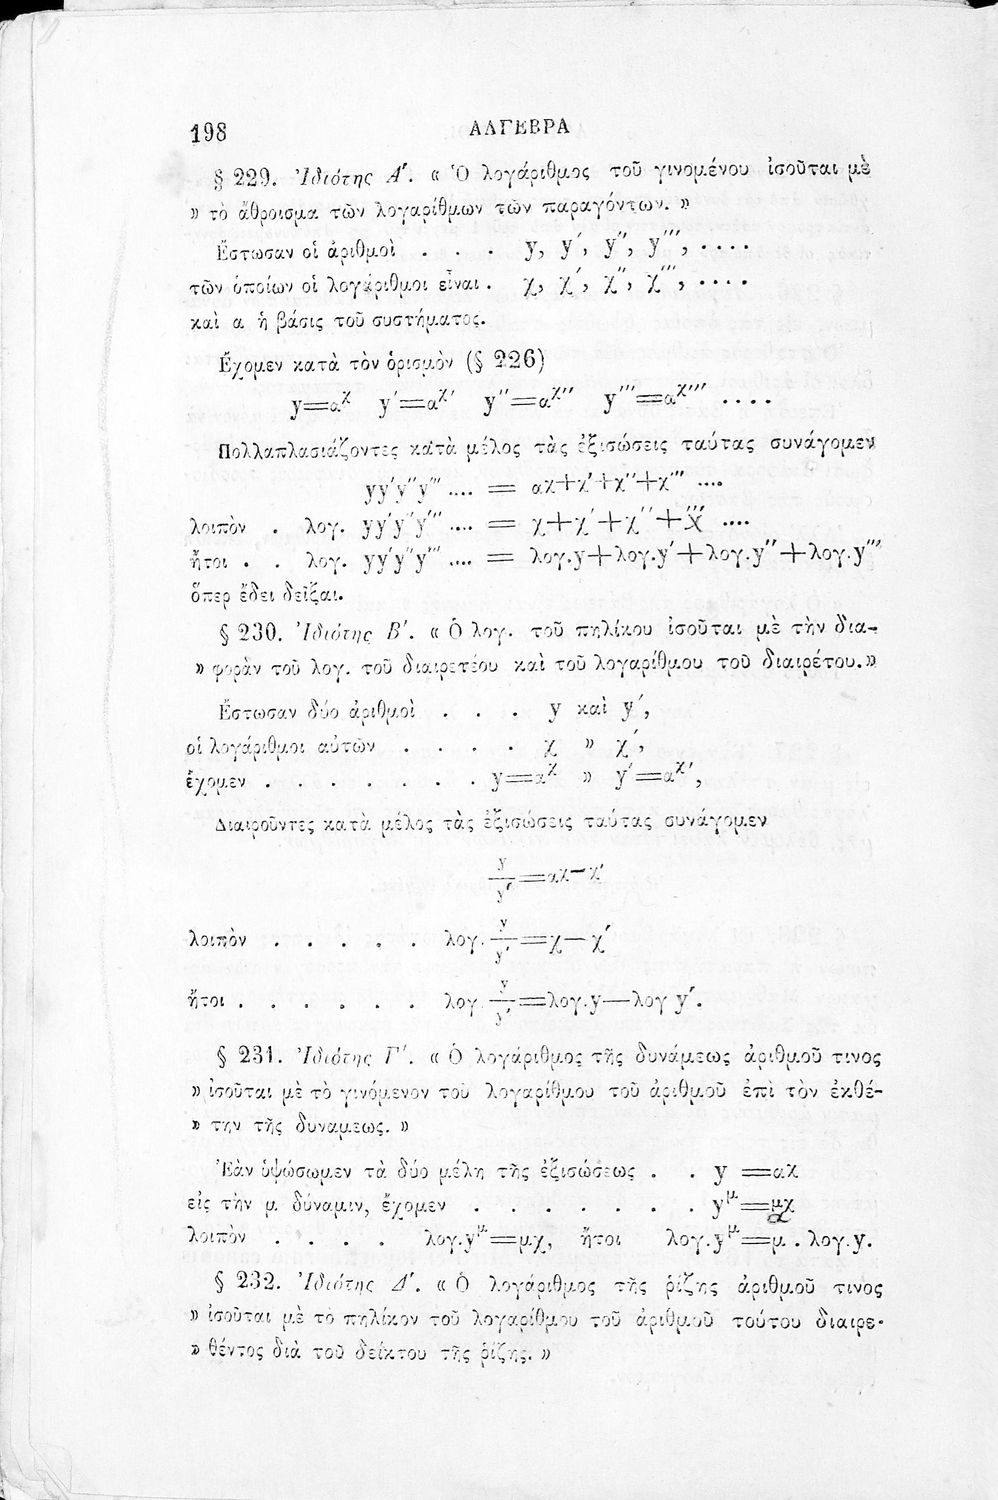 198 ΑΛΓΕΒΡΑ
§ 229. Ἰδιότης Α′. « Ὁ λογάριθμος τοῦ γινομένου ἰσοῦται μὲ
» τὸ ἄθροισμα τῶν λογαρίθμων τῶν παραγόντων. »
Ἔστωσαν οἱ ἀριθμοὶ . . . y, y′, y″, y‴, . . . .
τῶν ὁποίων οἱ λογάριθμοι εἶναι . χ, χ′, χ″, χ‴, . . . .
καὶ α ἡ βάσις τοῦ συστήματος.
Ἔχομεν κατὰ τὸν ὁρισμὸν (§ 226)
y=α^χ y′=α^χ′ y″=α^χ″ y‴=α^χ‴ . . . .
Πολλαπλασιάζοντες κατὰ μέλος τὰς ἐξισώσεις ταύτας συνάγομεν
yy′y″y‴ .... = αχ+χ′+χ″+χ‴ ....
λοιπὸν . λογ. yy′y″y‴ .... = χ+χ′+χ″+χ‴ ....
ἤτοι . . λογ. yy′y″y‴ .... = λογ.y+λογ.y′+λογ.y″+λογ.y‴
ὅπερ ἔδει δεῖξαι.
§ 230. Ἰδιότης Β′. « Ὁ λογ. τοῦ πηλίκου ἰσοῦται μὲ τὴν δια-
» φορὰν τοῦ λογ. τοῦ διαιρετέου καὶ τοῦ λογαρίθμου τοῦ διαιρέτου.»
Ἔστωσαν δύο ἀριθμοὶ . . . y καὶ y′,
οἱ λογάριθμοι αὐτῶν . . . . χ » χ′,
ἔχομεν . . . . . . . y=α^χ » y′=α^χ′,
Διαιροῦντες κατὰ μέλος τὰς ἐξισώσεις ταύτας συνάγομεν
y/y′=αχ—χ′
λοιπὸν . . . . . λογ. y/y′=χ—χ′
ἤτοι . . . . . . λογ. y/y′=λογ.y—λογ y′.
§ 231. Ἰδιότης Γ′. « Ὁ λογάριθμος τῆς δυνάμεως ἀριθμοῦ τινος
» ἰσοῦται μὲ τὸ γινόμενον τοῦ λογαρίθμου τοῦ ἀριθμοῦ ἐπὶ τὸν ἐκθέ-
» την τῆς δυναμεως. »
Ἐὰν ὑψώσωμεν τὰ δύο μέλη τῆς ἐξισώσεως . . y =αχ
εἰς τὴν μ δύναμιν, ἔχομεν . . . . . . . y^μ=μχ
α
λοιπὸν . . . . λογ.y^μ=μχ, ἤτοι λογ.y^μ=μ . λογ.y.
§ 232. Ἰδιότης Δ′. « Ὁ λογάριθμος τῆς ῥίζης ἀριθμοῦ τινος
» ἰσοῦται μὲ τὸ πηλίκον τοῦ λογαρίθμου τοῦ ἀριθμοῦ τούτου διαιρε-
» θέντος διὰ τοῦ δείκτου τῆς ῥίζης. »